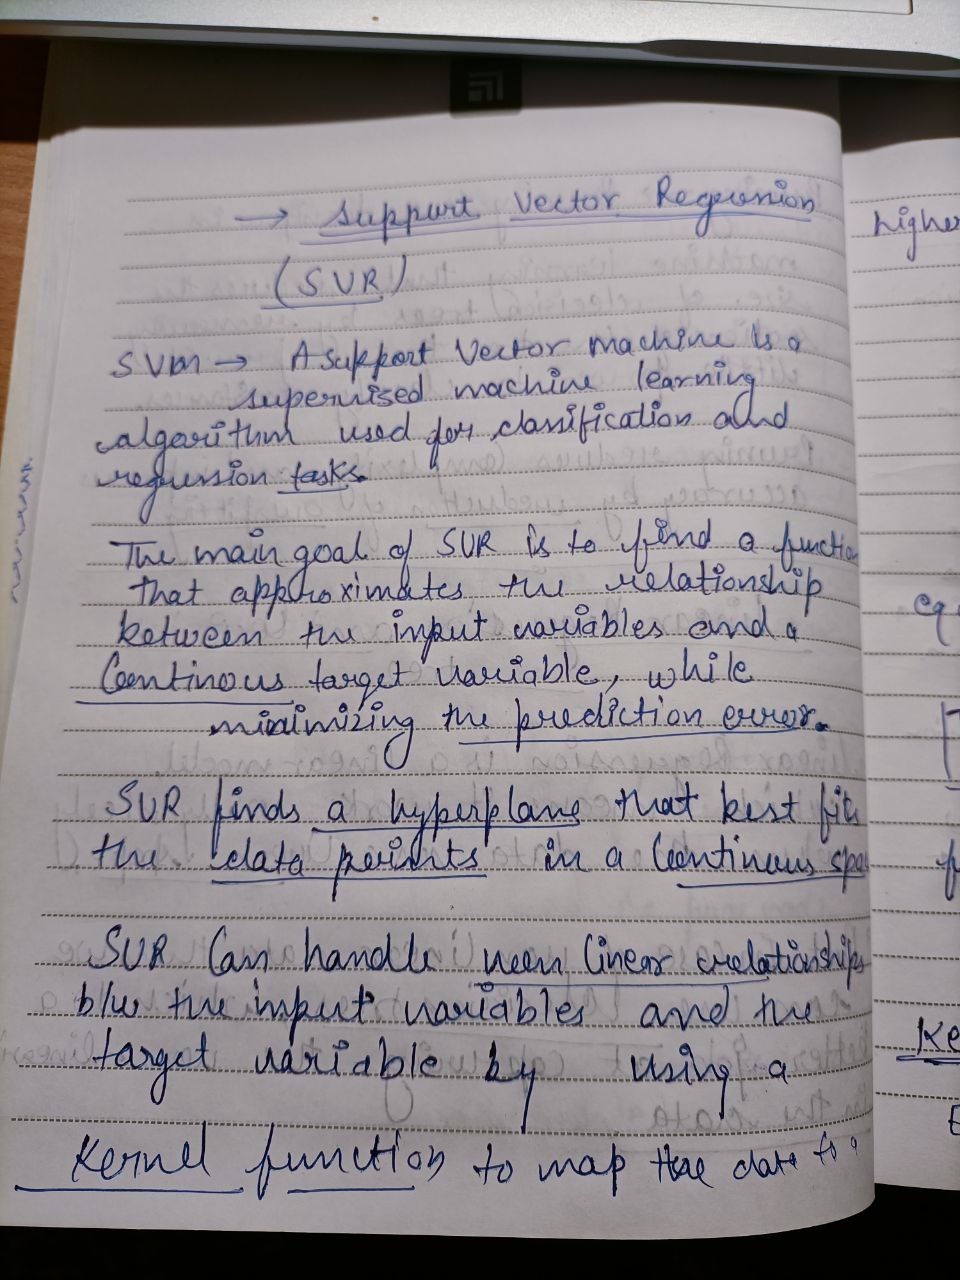 → Support Vector Regression
(SVR)
SVM → A support Vector machine is a
supervised machine learning
algorithm used for classification and
regression tasks.
The main goal of SVR is to find a functio
that approximates the relationship
between the input variables and a
Continous target variable, while
minimizing the prediction error.
SVR finds a hyperplane that best fits
the data points in a Continuous spa
SVR Can handle non linear relationships
b/w the input variables and the
target variable by using a
Kernel function to map the data to a
higher
eq
Ke